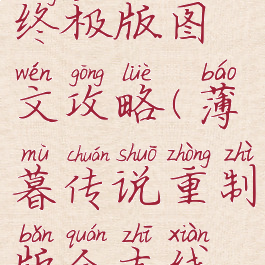 终极版图
wén gōng lüè báo
文攻略(薄
mù chuán shuō zhòng zhì
暮传说重制
bǎn quán zhī xiàn
版全支线